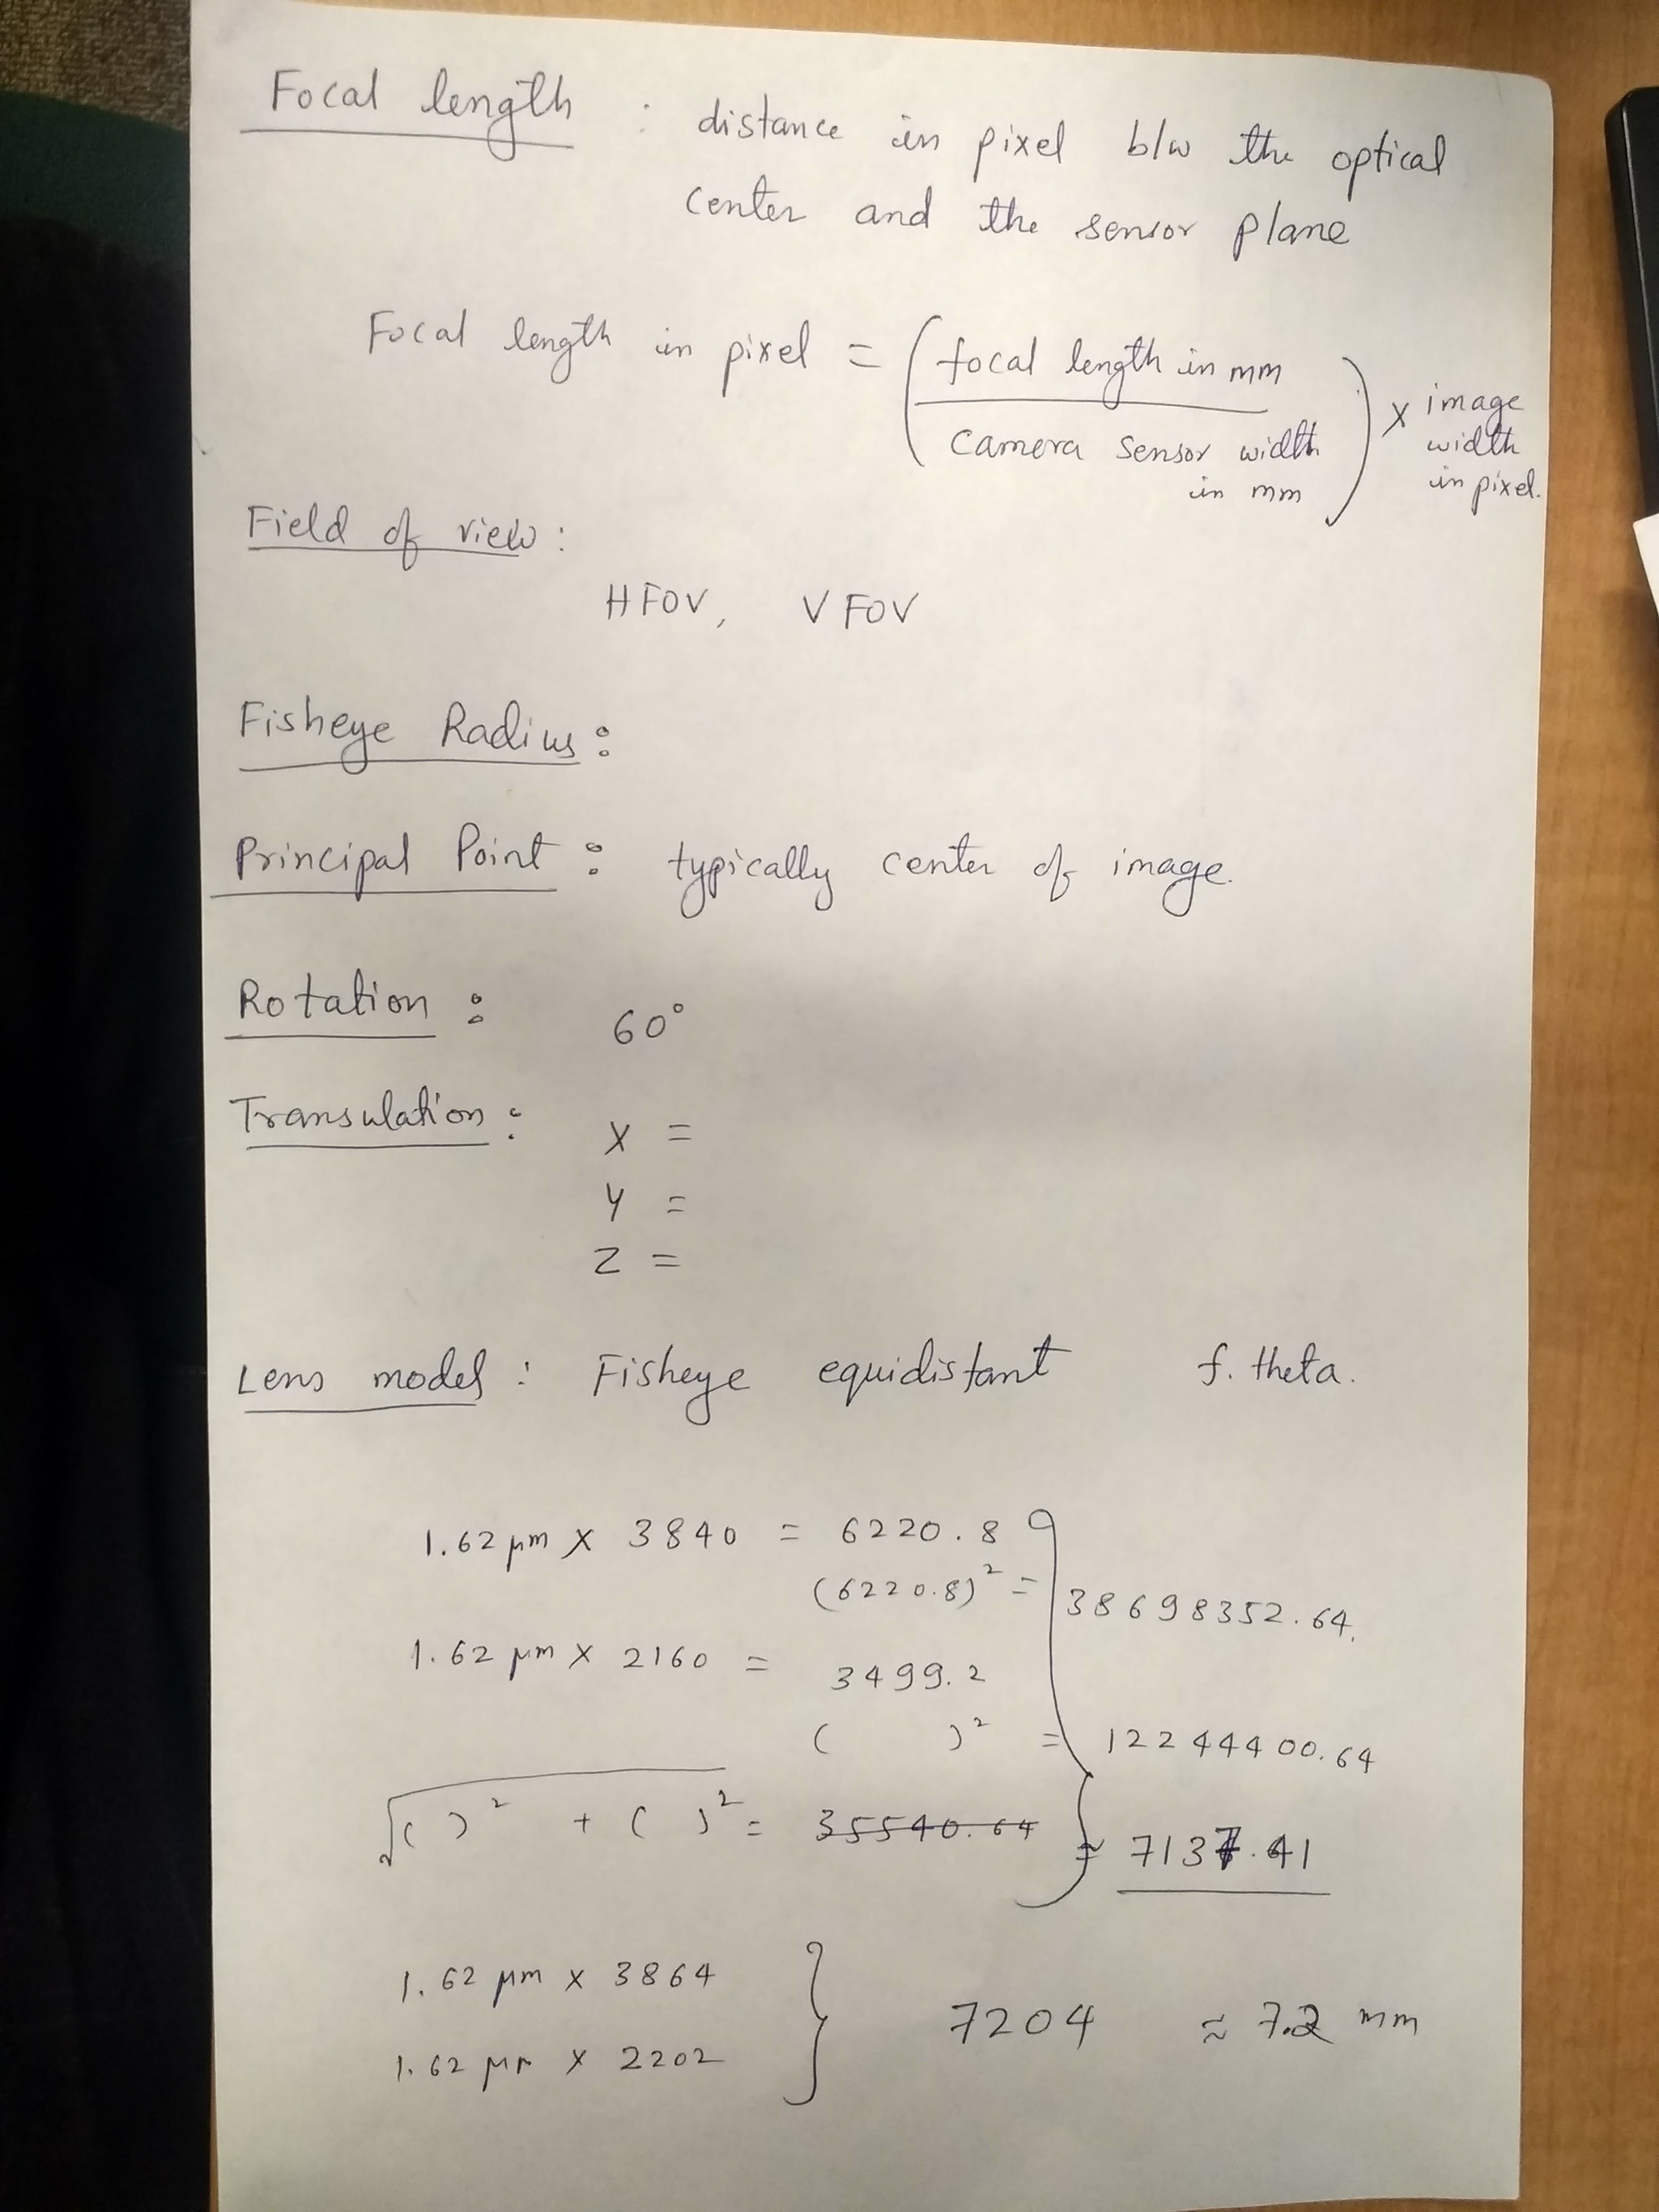 Focal length : distance in pixel b/w the optical
center and the sensor plane
Focal length in pixel = ( focal length in mm / camera sensor width in mm ) x image width in pixel.
Field of view :
HFOV, VFOV
Fisheye Radius :
Principal Point : typically center of image.
Rotation : 60°
Transulation : X =
Y =
Z =
Lens model : Fisheye equidistant f. theta.
1.62 µm x 3840 = 6220.8
(6220.8)² = 38698352.64.
1.62 µm x 2160 = 3499.2
( )² = 12244400.64
√( )² + ( )² = 35540.64 ≈ 7137.41
1.62 µm x 3864
1.62 µm x 2202
7204 ≈ 7.2 mm